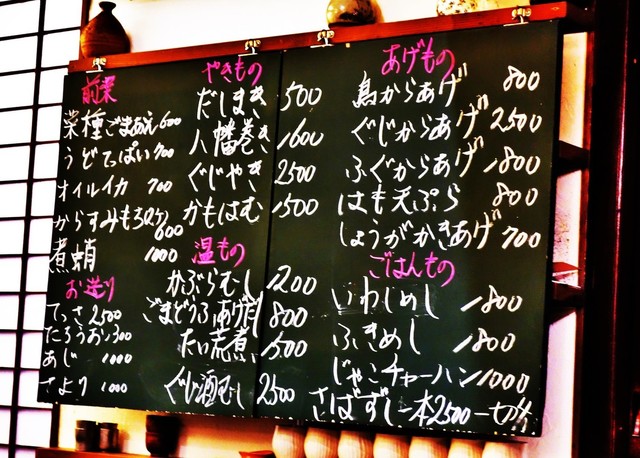 前菜
菜種ごまあえ 600
うどてっぱい 700
オイルイカ 700
からすみもろみ 600
煮蛸 1000
お造り
てっさ 2500
あじ 1000
さより 1000
やきもの
だしまき 500
八幡巻き 1600
ぐじやき 2500
かもはむ 1500
温もの
かぶらむし 1200
ごまどうふあげだし 800
たい荒煮 1500
ぐじ酒むし 2500
あげもの
鳥からあげ 800
ぐじからあげ 2500
ふぐからあげ 1800
はも天ぷら 800
しょうがかきあげ 700
ごはんもの
いわしめし 1800
ふきめし 1800
じゃこチャーハン 1000
さばずし一本2500一切